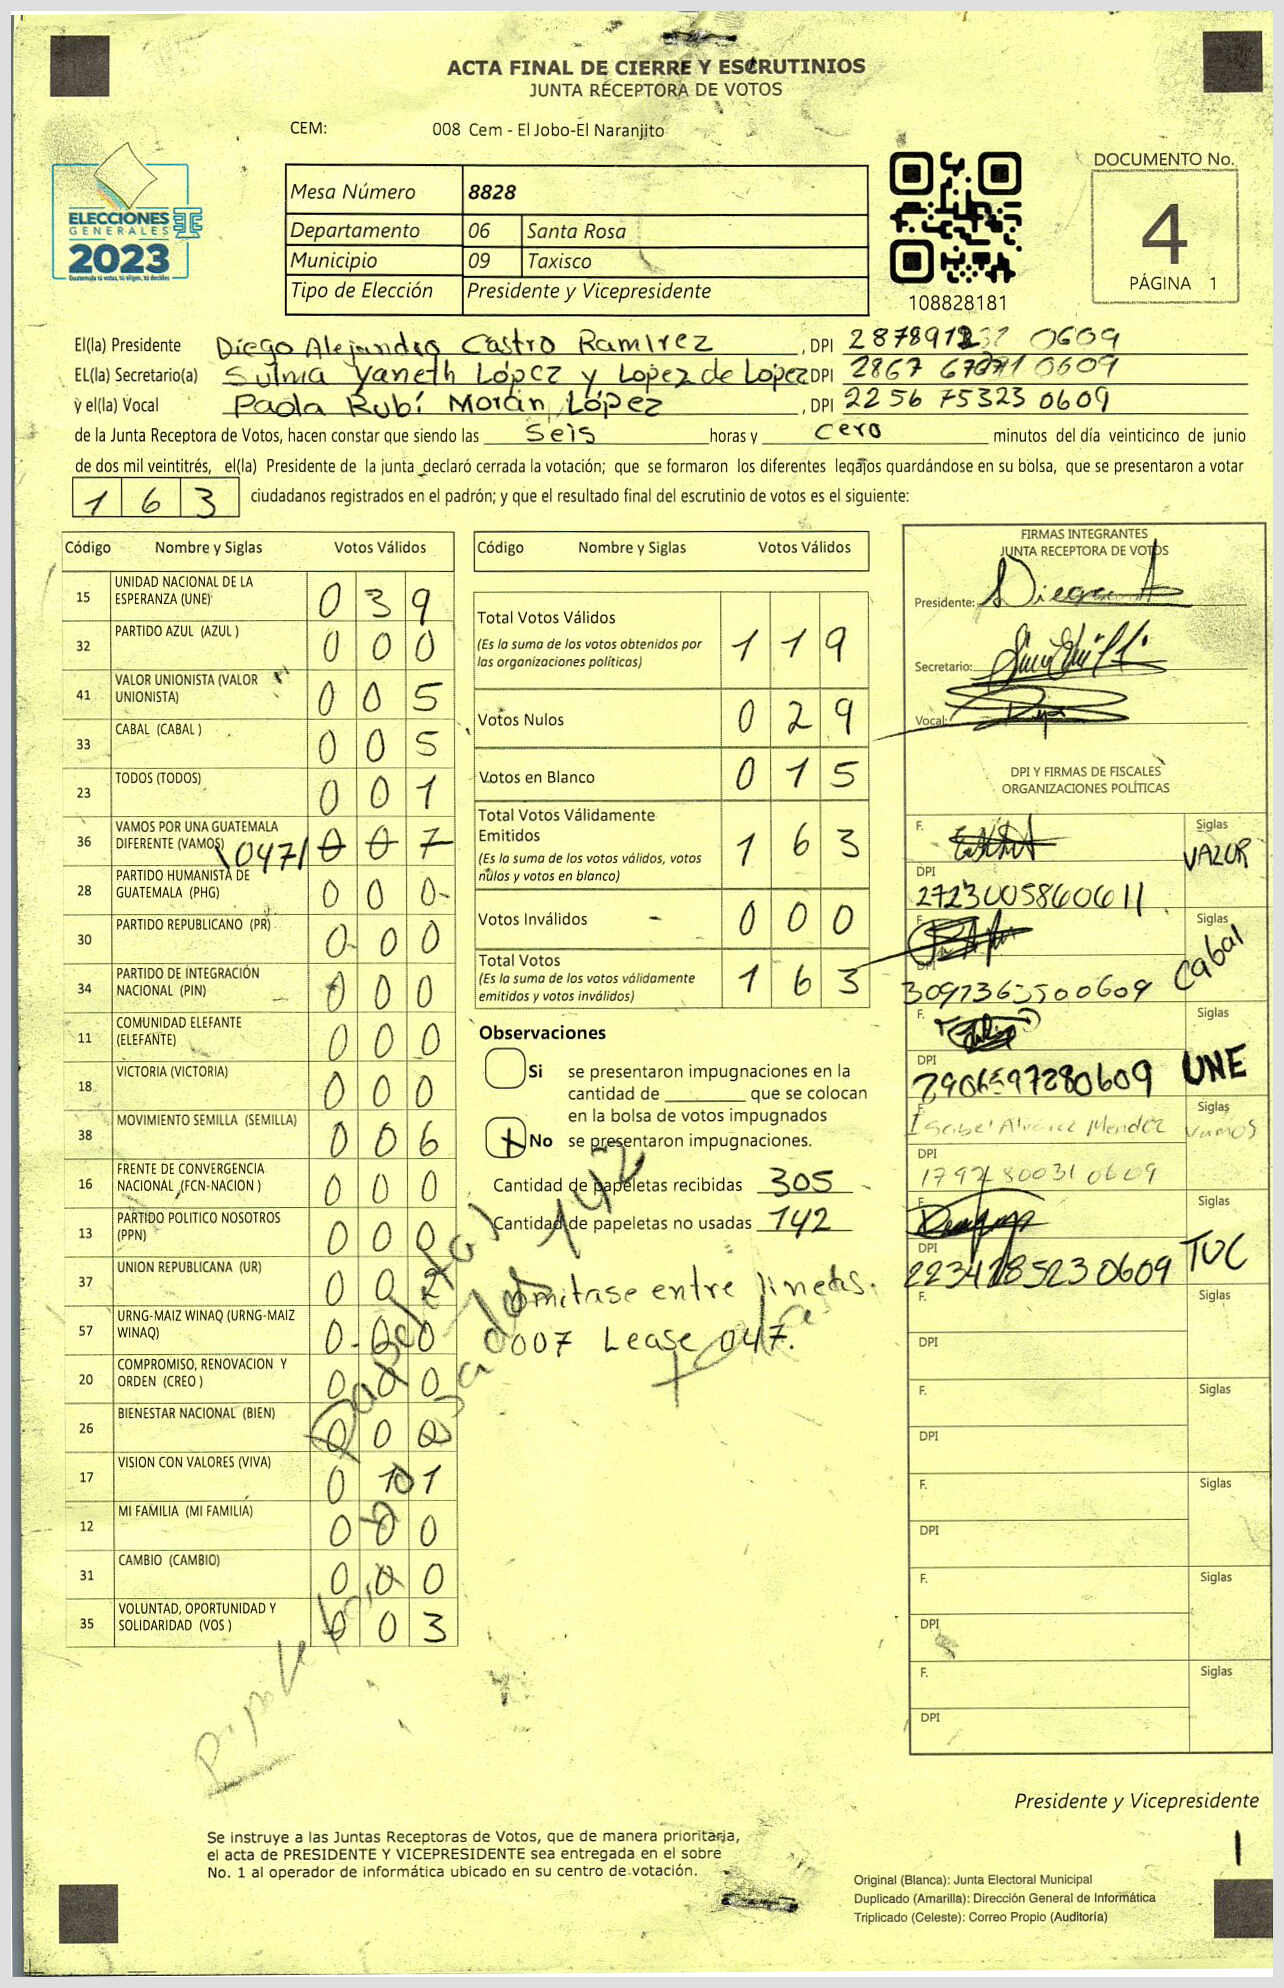 ACTA FINAL DE CIERRE Y ESCRUTINIOS
JUNTA RECEPTORA DE VOTOS
CEM: 008 Cem - El Jobo-El Naranjito
ELECCIONES
GENERALES
2023
Mesa Número 8828
Departamento 06 Santa Rosa
Municipio 09 Taxisco
Tipo de Elección Presidente y Vicepresidente
108828181
DOCUMENTO No.
4
PÁGINA 1
El(la) Presidente Diego Alejandro Castro Ramirez, DPI 0609
EL(la) Secretario(a) Yaneth López y Lopez de Lopez DPI 2867 0609
y el(la) Vocal Paola Rubí Morán López, DPI 2256 75323 0609
de la Junta Receptora de Votos, hacen constar que siendo las Seis horas y cero minutos del día veinticinco de junio
de dos mil veintitrés, el(la) Presidente de la junta declaró cerrada la votación; que se formaron los diferentes legajos guardándose en su bolsa, que se presentaron a votar
163 ciudadanos registrados en el padrón; y que el resultado final del escrutinio de votos es el siguiente:
Código Nombre y Siglas Votos Válidos
15 UNIDAD NACIONAL DE LA ESPERANZA (UNE) 0 3 9
32 PARTIDO AZUL (AZUL ) 0 0 0
41 VALOR UNIONISTA (VALOR UNIONISTA) 0 0 5
33 CABAL (CABAL ) 0 0 5
23 TODOS (TODOS) 0 0 1
36 VAMOS POR UNA GUATEMALA DIFERENTE (VAMOS) \047/ 0 0 7
28 PARTIDO HUMANISTA DE GUATEMALA (PHG) 0 0 0
30 PARTIDO REPUBLICANO (PR) 0 0 0
34 PARTIDO DE INTEGRACIÓN NACIONAL (PIN) 0 0 0
11 COMUNIDAD ELEFANTE (ELEFANTE) 0 0 0
18 VICTORIA (VICTORIA) 0 0 0
38 MOVIMIENTO SEMILLA (SEMILLA) 0 0 6
16 FRENTE DE CONVERGENCIA NACIONAL (FCN-NACION ) 0 0 0
13 PARTIDO POLITICO NOSOTROS (PPN) 0 0 0
37 UNION REPUBLICANA (UR) 0 0 2
57 URNG-MAIZ WINAQ (URNG-MAIZ WINAQ) 0 0 0
20 COMPROMISO, RENOVACION Y ORDEN (CREO ) 0 0 0
26 BIENESTAR NACIONAL (BIEN) 0 0 0
17 VISION CON VALORES (VIVA) 0 1
12 MI FAMILIA (MI FAMILIA) 0 0 0
31 CAMBIO (CAMBIO) 0 0 0
35 VOLUNTAD, OPORTUNIDAD Y SOLIDARIDAD (VOS ) 0 0 3
Código Nombre y Siglas Votos Válidos
Total Votos Válidos 1 1 9
(Es la suma de los votos obtenidos por
las organizaciones políticas)
Votos Nulos 0 2 9
Votos en Blanco 0 1 5
Total Votos Válidamente
Emitidos 1 6 3
(Es la suma de los votos válidos, votos
nulos y votos en blanco)
Votos Inválidos 0 0 0
Total Votos 1 6 3
(Es la suma de los votos válidamente
emitidos y votos inválidos)
Observaciones
Si se presentaron impugnaciones en la
cantidad de ________ que se colocan
en la bolsa de votos impugnados
No se presentaron impugnaciones.
Cantidad de papeletas recibidas 305
Cantidad de papeletas no usadas 142
omitase entre lineas.
0007 Lease 047.
142
FIRMAS INTEGRANTES
JUNTA RECEPTORA DE VOTOS
Presidente:
Secretario:
Vocal:
DPI Y FIRMAS DE FISCALES
ORGANIZACIONES POLÍTICAS
F. Siglas VALOR
DPI 2723005860611
F. Siglas Cabal
DPI
F. Siglas UNE
DPI 2906597280609
F. Isabel Mendez Siglas Vamos
DPI 1792800310609
F. Siglas TUC
DPI
F. Siglas
DPI
F. Siglas
DPI
F. Siglas
DPI
F. Siglas
DPI
F. Siglas
DPI
Presidente y Vicepresidente
1
Se instruye a las Juntas Receptoras de Votos, que de manera prioritaria,
el acta de PRESIDENTE Y VICEPRESIDENTE sea entregada en el sobre
No. 1 al operador de informática ubicado en su centro de votación.
Original (Blanca): Junta Electoral Municipal
Duplicado (Amarilla): Dirección General de Informática
Triplicado (Celeste): Correo Propio (Auditoría)